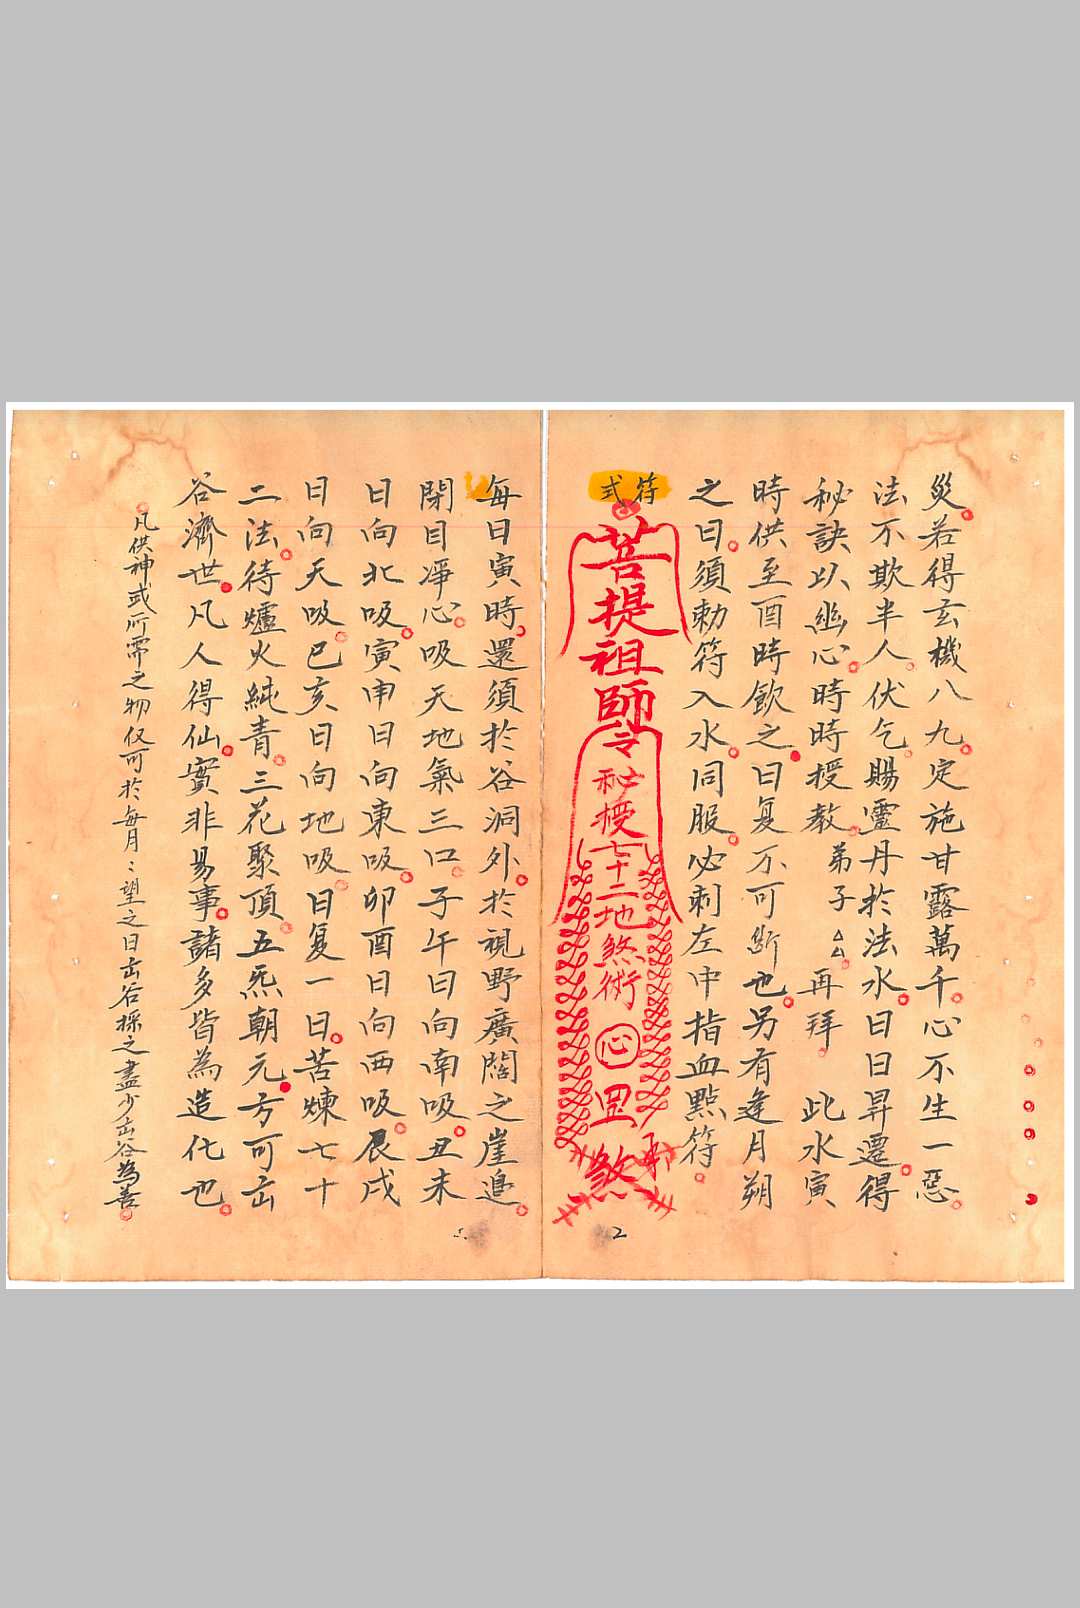 災若得玄機八九定施甘露萬千心不生一惡
法不欺半人伏乞賜靈丹於法水日日昇遷得
秘訣以幽心時時授教弟子△△再拜 此水寅
時供至酉時飲之日复不可斷也另有逢月朔
之日須勅符入水同服必刺左中指血點符
符式
菩提祖師
令
秘授七十二地煞術
心
罡
煞
每日寅時還須於谷洞外於視野廣闊之崖邊
閉目淨心吸天地氣三口子午日向南吸丑未
日向北吸寅申日向東吸卯酉日向西吸辰戌
日向天吸巳亥日向地吸日复一日苦煉七十
二法待爐火純青三花聚頂五炁朝元方可出
谷濟世凡人得仙實非易事諸多皆為造化也
凡供神或所需之物仅可於每月:望之日出谷採之盡少出谷為善
2